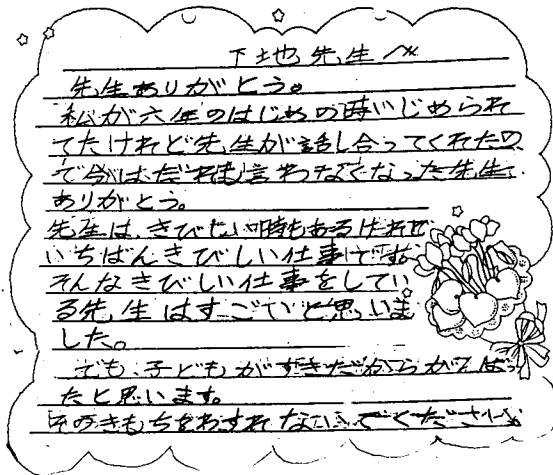 下地先生へ
先生ありがとう。
私が六年のはじめの時いじめられ
てたけれど先生が話し合ってくれたの
で今はだれも言わなくなった先生、
ありがとう。
先生は、きびしい時もあるけれど
いちばんきびしい仕事です。
そんなきびしい仕事をしてい
る先生はすごいと思いま
した。
でも、子どもがすきだからがんばっ
たと思います。
そのきもちをわすれないでください